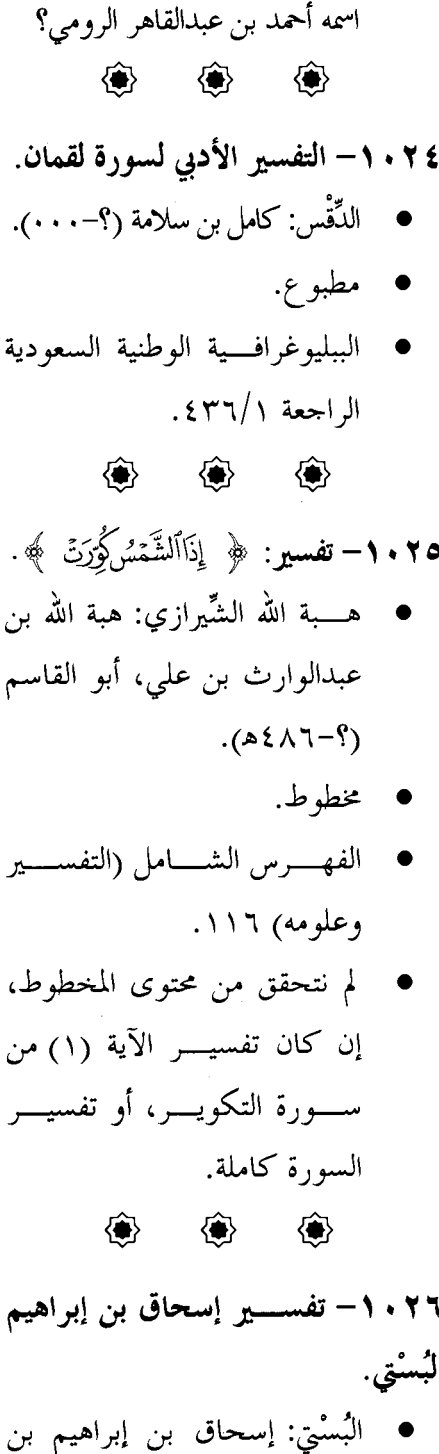 اسمه أحمد بن عبدالقاهر الرومي؟
١٠٢٤- التفسير الأدبي لسورة لقمان.
● الدِّقْس: كامل بن سلامة (؟-٠٠٠).
● مطبوع.
● الببليوغرافية الوطنية السعودية
الراجعة ٤٣٦/١.
١٠٢٥- تفسير: ﴿ إِذَا ٱلشَّمْسُ كُوِّرَتْ ﴾.
● هبة الله الشِّيرازي: هبة الله بن
عبدالوارث بن علي، أبو القاسم
(؟-٤٨٦هـ).
● مخطوط.
● الفهرس الشامل (التفسير
وعلومه) ١١٦.
● لم نتحقق من محتوى المخطوط،
إن كان تفسير الآية (١) من
سورة التكوير، أو تفسير
السورة كاملة.
١٠٢٦- تفسير إسحاق بن إبراهيم
لبُسْتي.
● البُسْتي: إسحاق بن إبراهيم بن